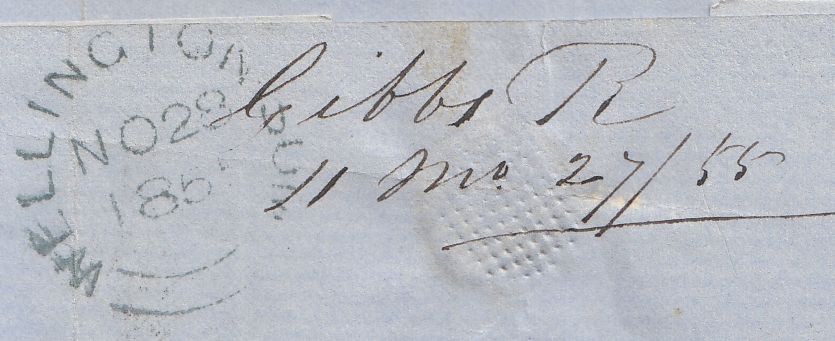 WELLINGTON
NO 28
1855
Gibbs R
11 Mo. 27/55